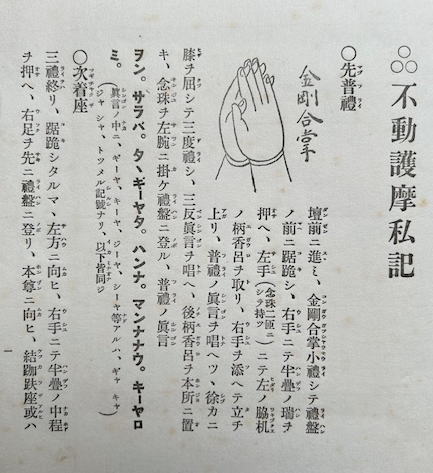 不動護摩私記
〇先普禮
金剛合掌
壇前ニ進ミ、金剛合掌小禮シテ禮盤
ノ前ニ踞跪シ、右手ニテ半疊ノ瑞ヲ
押ヘ、左手(念珠二匝ニシテ持ツ)ニテ左ノ脇机
ノ柄香呂ヲ取リ、右手ヲ添ヘテ立チ
上リ、普禮ノ眞言ヲ唱ヘツヽ徐カニ
膝ヲ屈シテ三度禮シ、三反眞言ヲ唱ヘ、後柄香呂ヲ本所ニ置
キ、念珠ヲ左腕ニ掛ケ禮盤ニ登ル、普禮ノ眞言
ヲン。サラバ。タヽギャタ。ハンナ。マンナナウ。キーヤロ
ミ。(眞言ノ中ニ、ギーヤ、キーヤ、ジーヤ、シーヤ等アルハ、ギャ キャ ジャ シャ、トツメル記號ナリ、以下皆同ジ)
〇次着座
三禮終リ、踞跪シタルマヽ、左方ニ向ヒ、右手ニテ半疊ノ中程
ヲ押ヘ、右足ヲ先ニ禮盤ニ登リ、本尊ニ向ヒ、結跏趺座或ハ
一